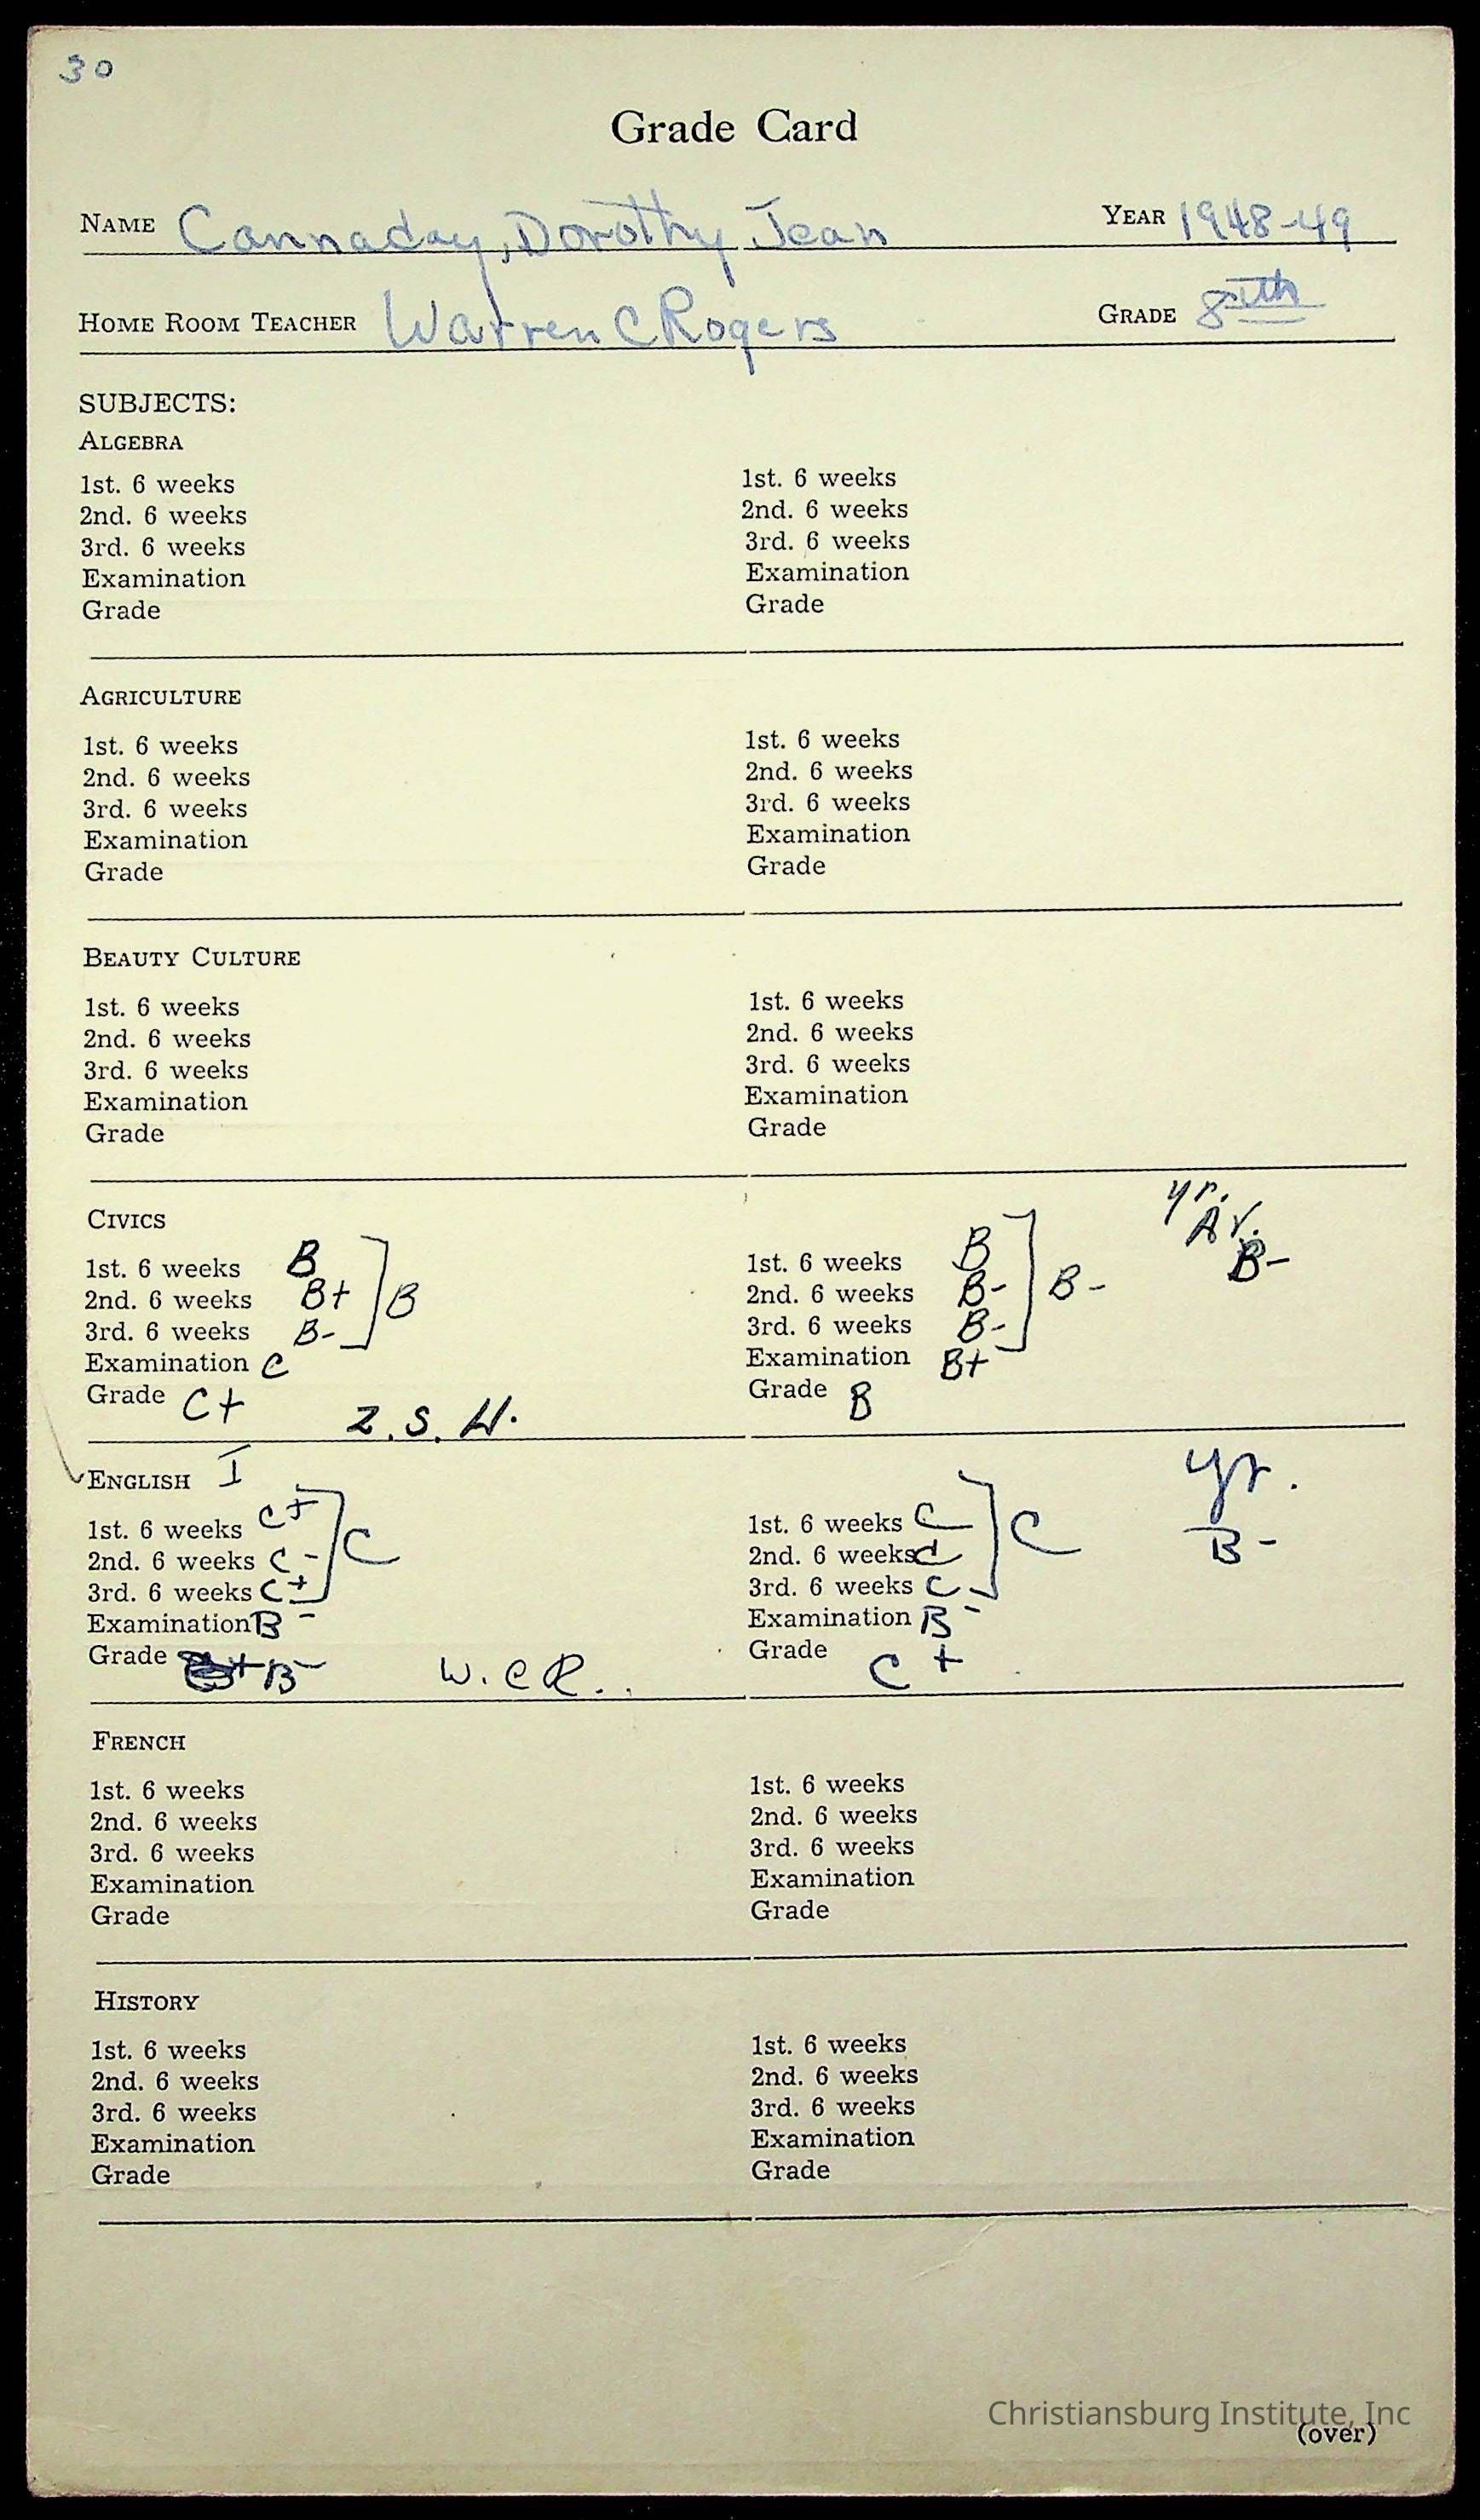 30
Grade Card
NAME Cannaday, Dorothy Jean YEAR 1948-49
HOME ROOM TEACHER Warren C Rogers GRADE 8th
SUBJECTS:
ALGEBRA
1st. 6 weeks 1st. 6 weeks
2nd. 6 weeks 2nd. 6 weeks
3rd. 6 weeks 3rd. 6 weeks
Examination Examination
Grade Grade
AGRICULTURE
1st. 6 weeks 1st. 6 weeks
2nd. 6 weeks 2nd. 6 weeks
3rd. 6 weeks 3rd. 6 weeks
Examination Examination
Grade Grade
BEAUTY CULTURE
1st. 6 weeks 1st. 6 weeks
2nd. 6 weeks 2nd. 6 weeks
3rd. 6 weeks 3rd. 6 weeks
Examination Examination
Grade Grade
CIVICS yr. Av. B-
1st. 6 weeks B 1st. 6 weeks B
2nd. 6 weeks B+ ] B 2nd. 6 weeks B- ] B-
3rd. 6 weeks B- 3rd. 6 weeks B-
Examination C Examination B+
Grade C+ Z.S.W. Grade B
ENGLISH I yr. B-
1st. 6 weeks C+ 1st. 6 weeks C
2nd. 6 weeks C- ] C 2nd. 6 weeks C ] C
3rd. 6 weeks C+ 3rd. 6 weeks C-
Examination B- Examination B-
Grade B- W.C.R.. Grade C+
FRENCH
1st. 6 weeks 1st. 6 weeks
2nd. 6 weeks 2nd. 6 weeks
3rd. 6 weeks 3rd. 6 weeks
Examination Examination
Grade Grade
HISTORY
1st. 6 weeks 1st. 6 weeks
2nd. 6 weeks 2nd. 6 weeks
3rd. 6 weeks 3rd. 6 weeks
Examination Examination
Grade Grade
Christiansburg Institute, Inc
(over)